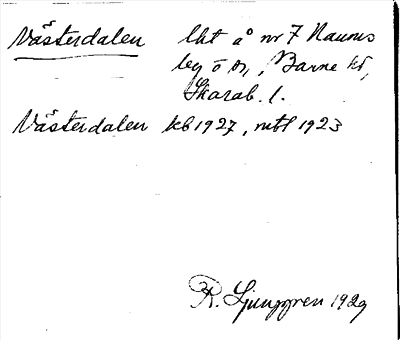 Västerdalen lht å nr 7 Naums
by ö sn, Barne hd,
Skarab. l.
Västerdalen kb 1927, mtl 1923
R. Ljunggren 1929